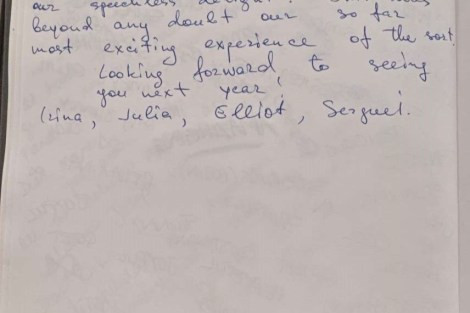 our speechless delight.
beyond any doubt our so far
most exciting experience of the sort.
Looking forward to seeing
you next year!
Irina, Julia, Elliot, Serguei.